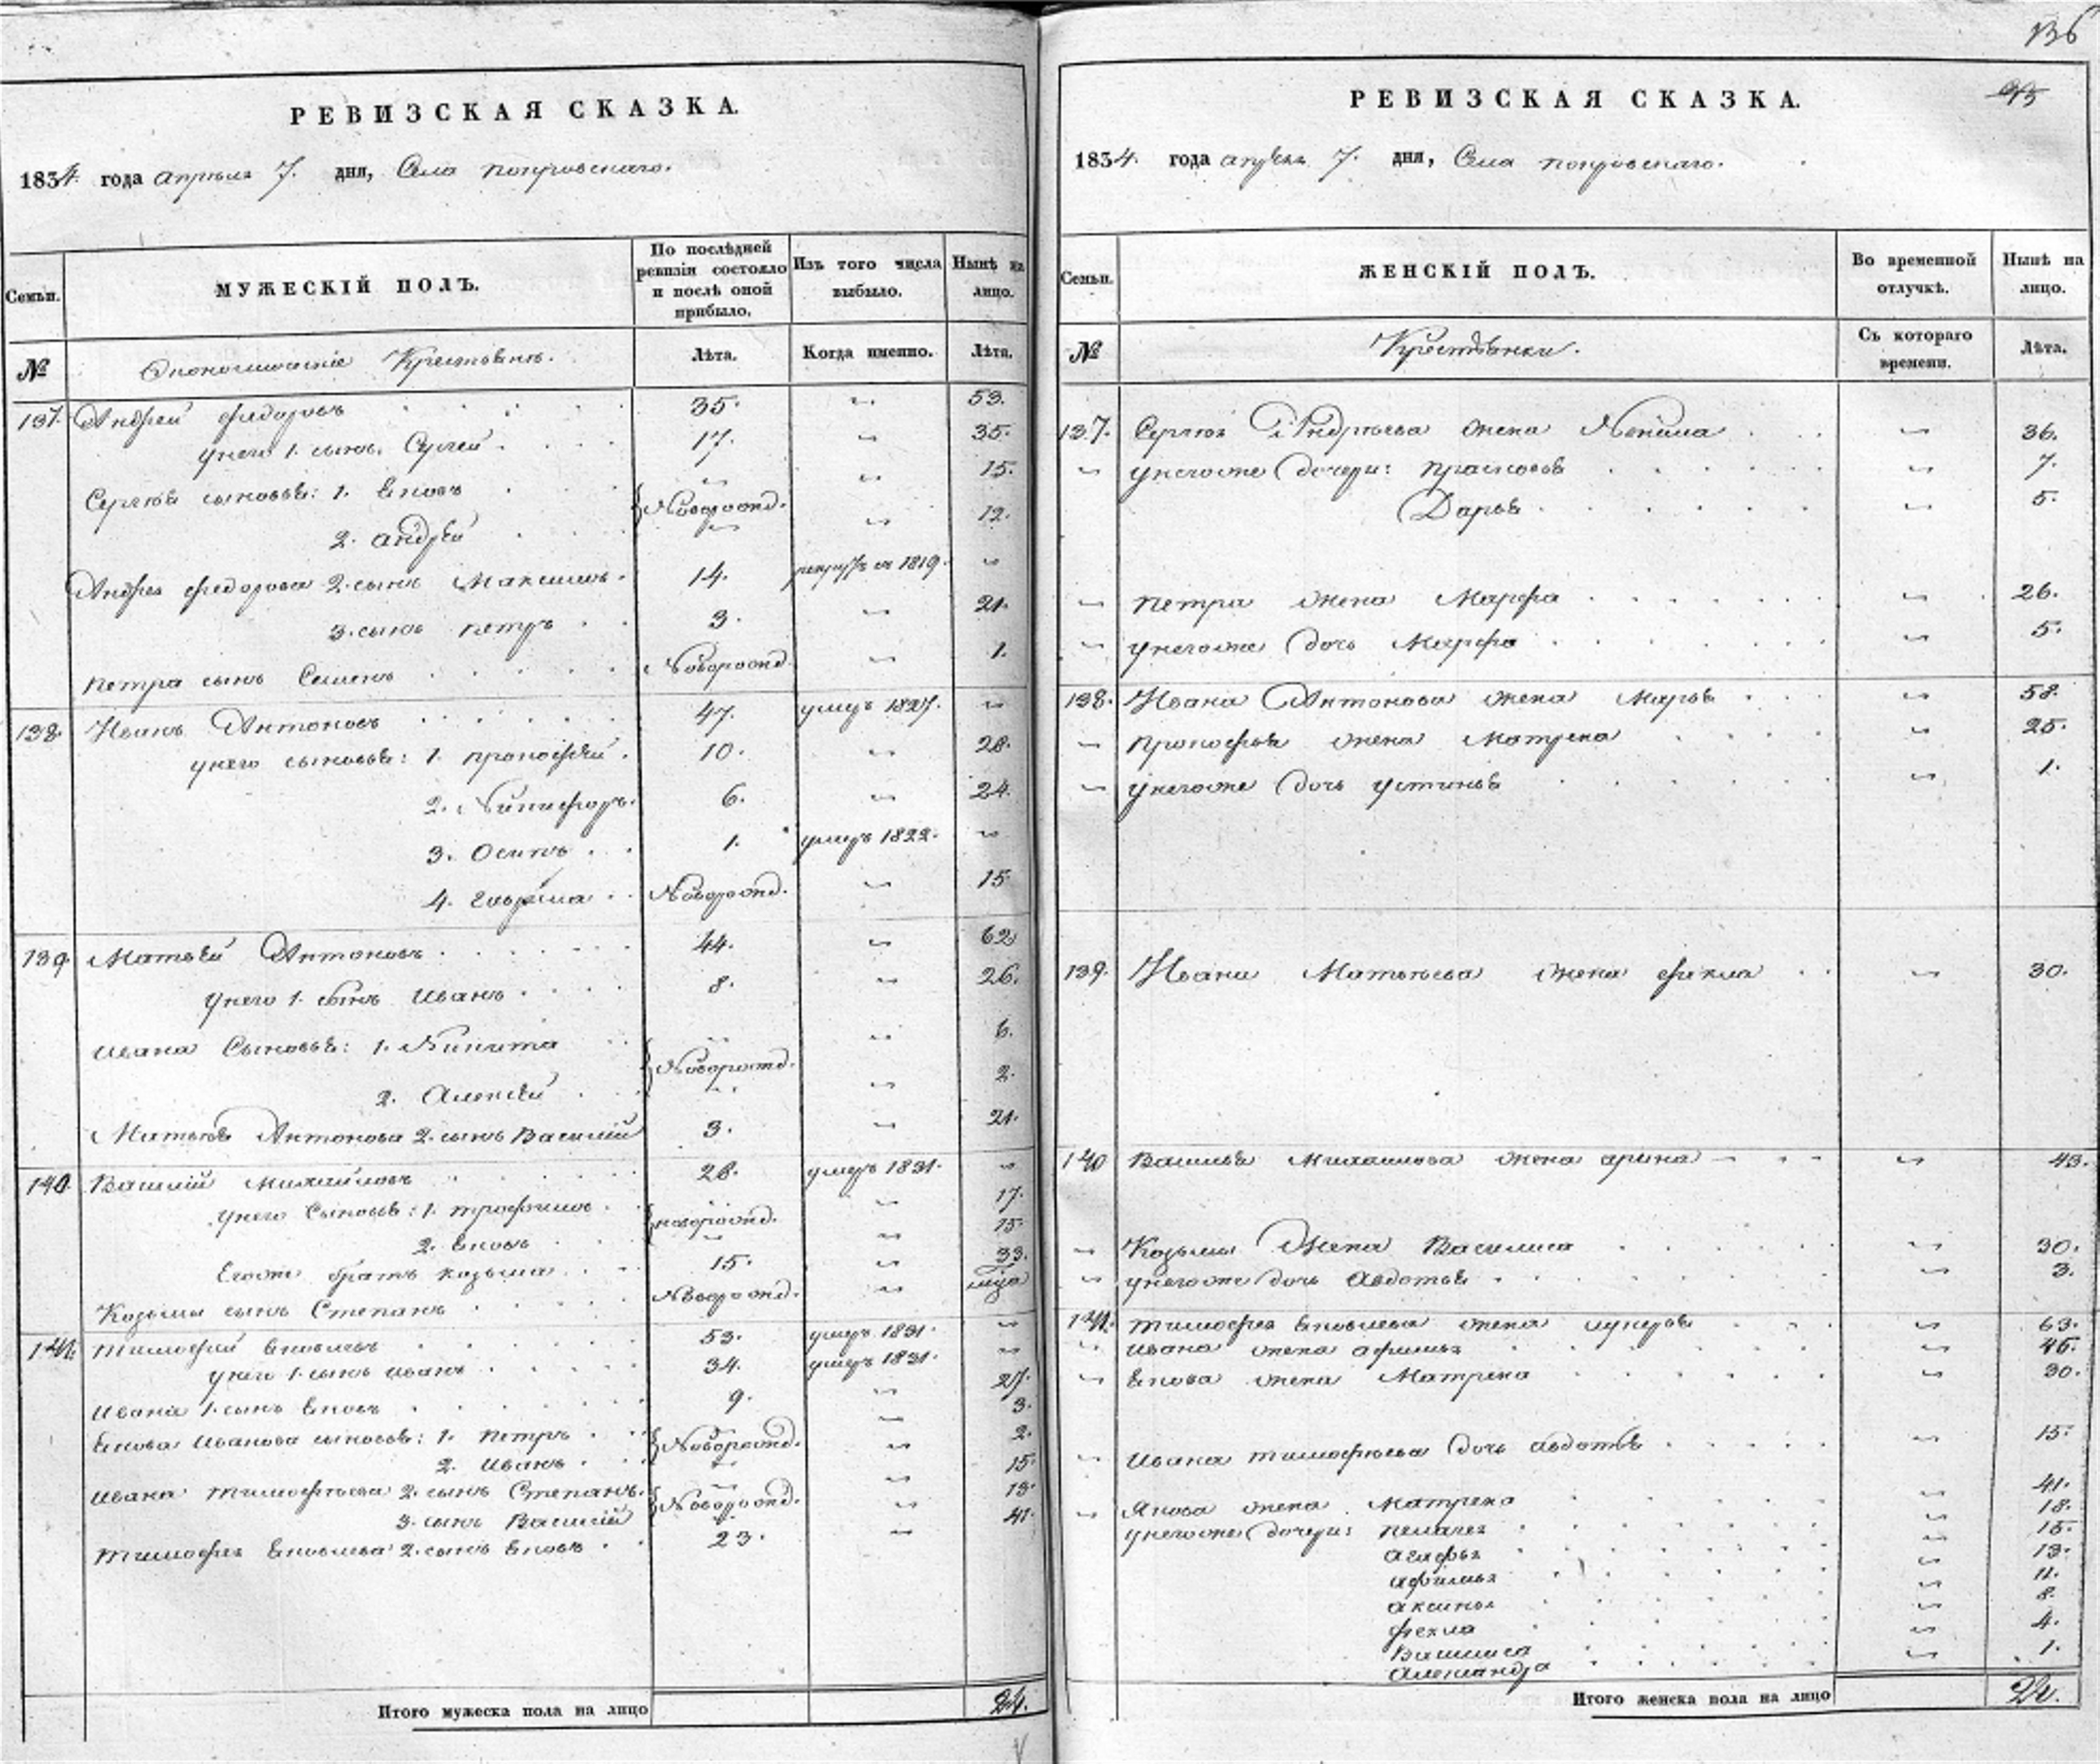 136
РЕВИЗСКАЯ СКАЗКА.
1834. года апреля 7. дня, Села покровскаго.
Семьи.
МУЖЕСКІЙ ПОЛЪ.
По послѣдней ревизіи состояло и послѣ оной прибыло.
Изъ того числа выбыло.
Нынѣ на лицо.
№
Экономическіе Крестьяне.
Лѣта.
Когда именно.
Лѣта.
137. Андрей федоровъ 35. 53.
унего 1. сынъ Сергей 17. 35.
Сергѣя сыновья: 1. Яковъ Новорожд. 15.
2. андрей 12.
Андрея федорова 2. сынъ Максимъ 14. 1819.
3. сынъ петръ 3. 21.
петра сынъ Семенъ Новорожд. 1.
138. Иванъ Антоновъ 47. умеръ 1827.
унего сыновья: 1. прокофей 10. 28.
2. Никифоръ 6. 24.
3. Осипъ 1. умеръ 1822.
4. гаврила Новорожд. 15
139. Матвей Антоновъ 44. 62
унего 1. сынъ иванъ 8. 26.
ивана Сыновья: 1. Никита Новорожд. 6.
2. Алексей 2.
Матвея Антонова 2. сынъ Василий 3. 21.
140. Василий михайловъ 28. умеръ 1831.
унего Сыновья: 1. трофимъ новорожд. 17.
2. Яковъ 15.
Егоже братъ козьма 15. 33.
Козьмы сынъ Степанъ Новорожд.
141. тимофей Яковлевъ 53. умеръ 1831.
унего 1. сынъ иванъ 34. умеръ 1831.
ивана 1. сынъ Яковъ 9. 27.
Якова иванова сыновья: 1. петръ Новорожд. 3.
2. иванъ 2.
ивана тимофѣева 2. сынъ Степанъ Новорожд. 15
3. сынъ Василий 13.
тимофея Яковлева 2. сынъ Яковъ 23. 41.
Итого мужеска пола на лицо 24.
РЕВИЗСКАЯ СКАЗКА.
95
1834. года апреля 7. дня, Села покровскаго.
Семьи.
ЖЕНСКІЙ ПОЛЪ.
Во временной отлучкѣ.
Нынѣ на лицо.
№
Крестьянки.
Съ котораго времени.
Лѣта.
137. Сергѣя Андрѣева жена Акилина 36.
унегоже дочери: прасковья 7.
Дарья 5.
петра жена Марфа 26.
унегоже дочь Марфа 5.
138. Ивана Антонова жена марья 58.
прокофья жена Матрена 25.
унегоже дочь устинья 1.
139. Ивана Матвѣева жена фекла 30.
140 Василья михайлова жена арина 43.
Козьмы Жена Василиса 30.
унегоже дочь авдотья 3.
141. тимофея Яковлева жена лукерья 63.
ивана жена афимья 46.
Якова жена Матрена 30.
ивана тимофѣева дочь авдотья 15.
Якова жена Матрена 41.
унегоже дочери: пелагея 18.
агафья 15.
афимья 13.
аксинья 11.
фекла 8.
Василиса 4.
александра 1.
Итого женска пола на лицо 24.